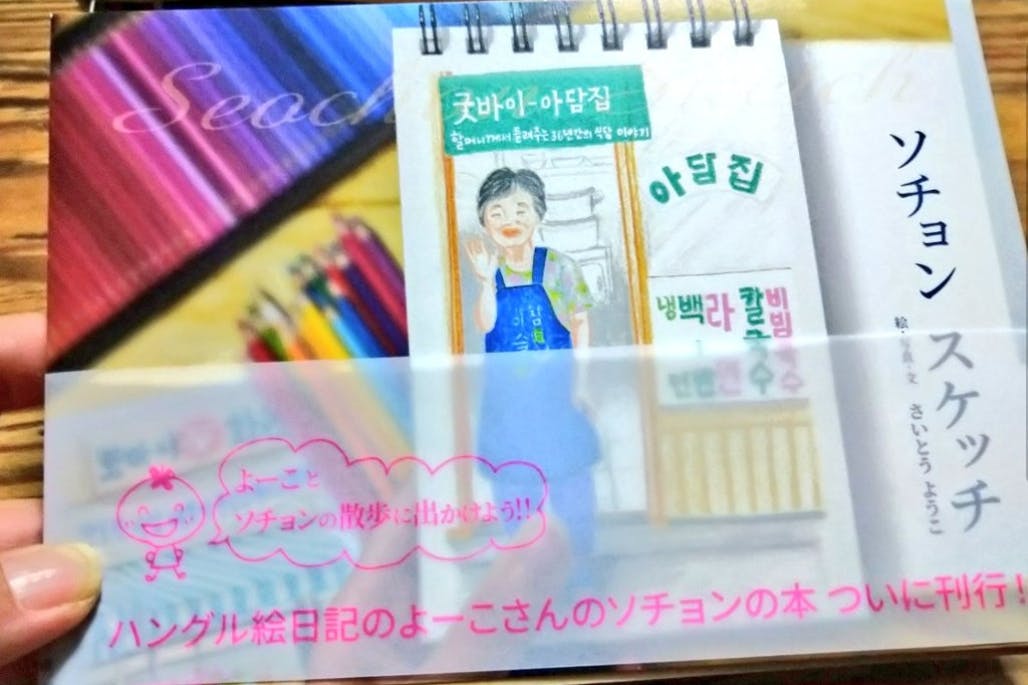 굿바이-아담집
할머니께서 들려주는 36년간의 식당 이야기
아담집
냉 백 라 칼 비빔
면 수
ソチョン スケッチ
絵・写真・文 さいとう ようこ
よーこと
ソチョンの散歩に出かけよう!!
ハングル絵日記のよーこさんのソチョンの本 ついに刊行!